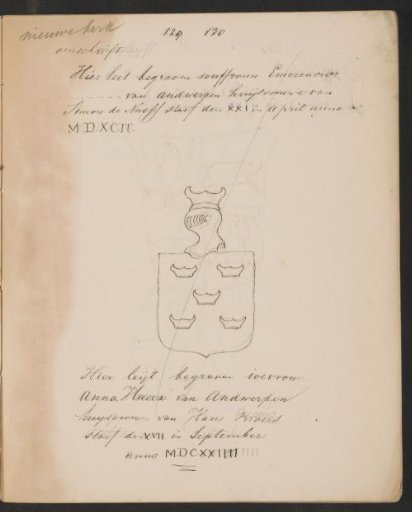 nieuwe kerk
omschrift
129 130
Hier leet begraven Jouffrouw Emerencia
van andwerpen huijsvrouwe van
Simon de Naeff starf den XXI in April anno
MDXCII.
Hier leijt begraven ioevrou
Anna van Andwerpen
huijsvrou van Hans
starf de XVII in September
anno MDCXXIIII